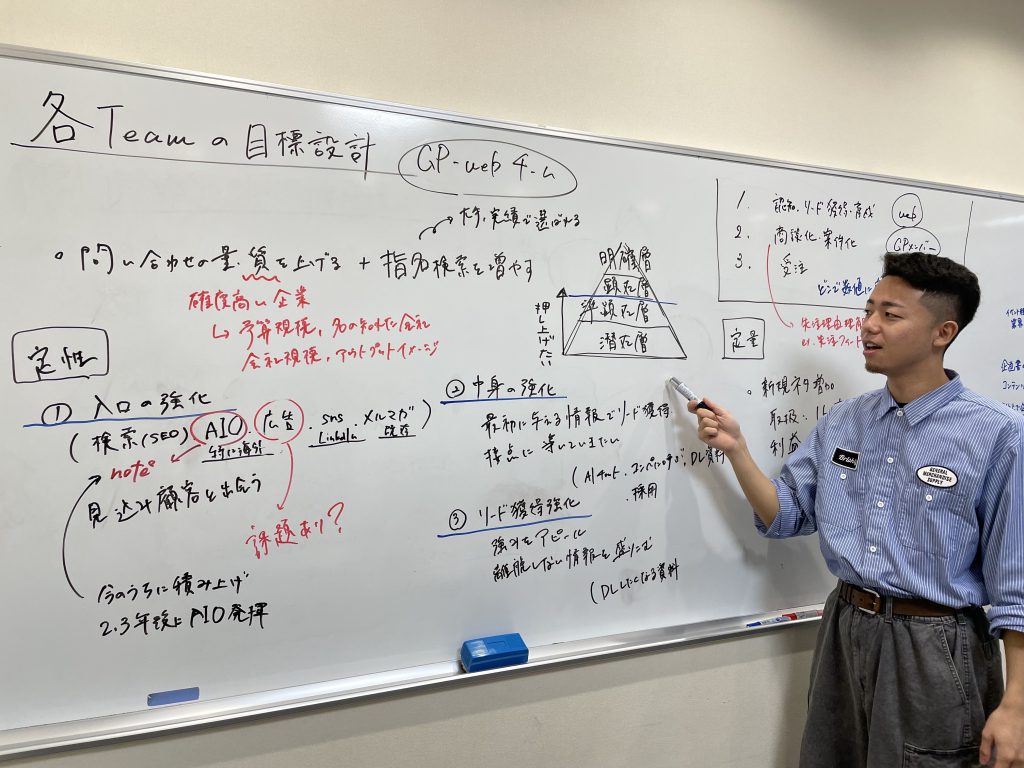 各Teamの目標設計
GP-webチーム
→ 実績で選ばれる
・問い合わせの量、質を上げる + 指名検索を増やす
確度高い企業
↳ 予算規模、名の知れた会社
会社規模、アウトプットイメージ
定性
① 入口の強化
(検索(SEO) AIO. 広告. sns メルマガ)
LinkedIn
既存
note
見込み顧客と出会う
課題あり?
今のうちに積み上げ
2.3年後にAIO発揮
明確層
顕在層
準顕在層
潜在層
押し上げたい
② 中身の強化
最初に与える情報でリード獲得
接点に導いていきたい
(AIチャット. コンバージョン. DL資料
・採用
③ リード獲得強化
強みをアピール
離脱しない情報を盛りこむ
(DLしたくなる資料
1. 認知.リード獲得.育成
web
2. 商談化.案件化
GPメンバー
3. 受注
失注理由
定量
・新規
取扱:
利益
企画書
GENERAL
MERCHANDISE
SUPPLY